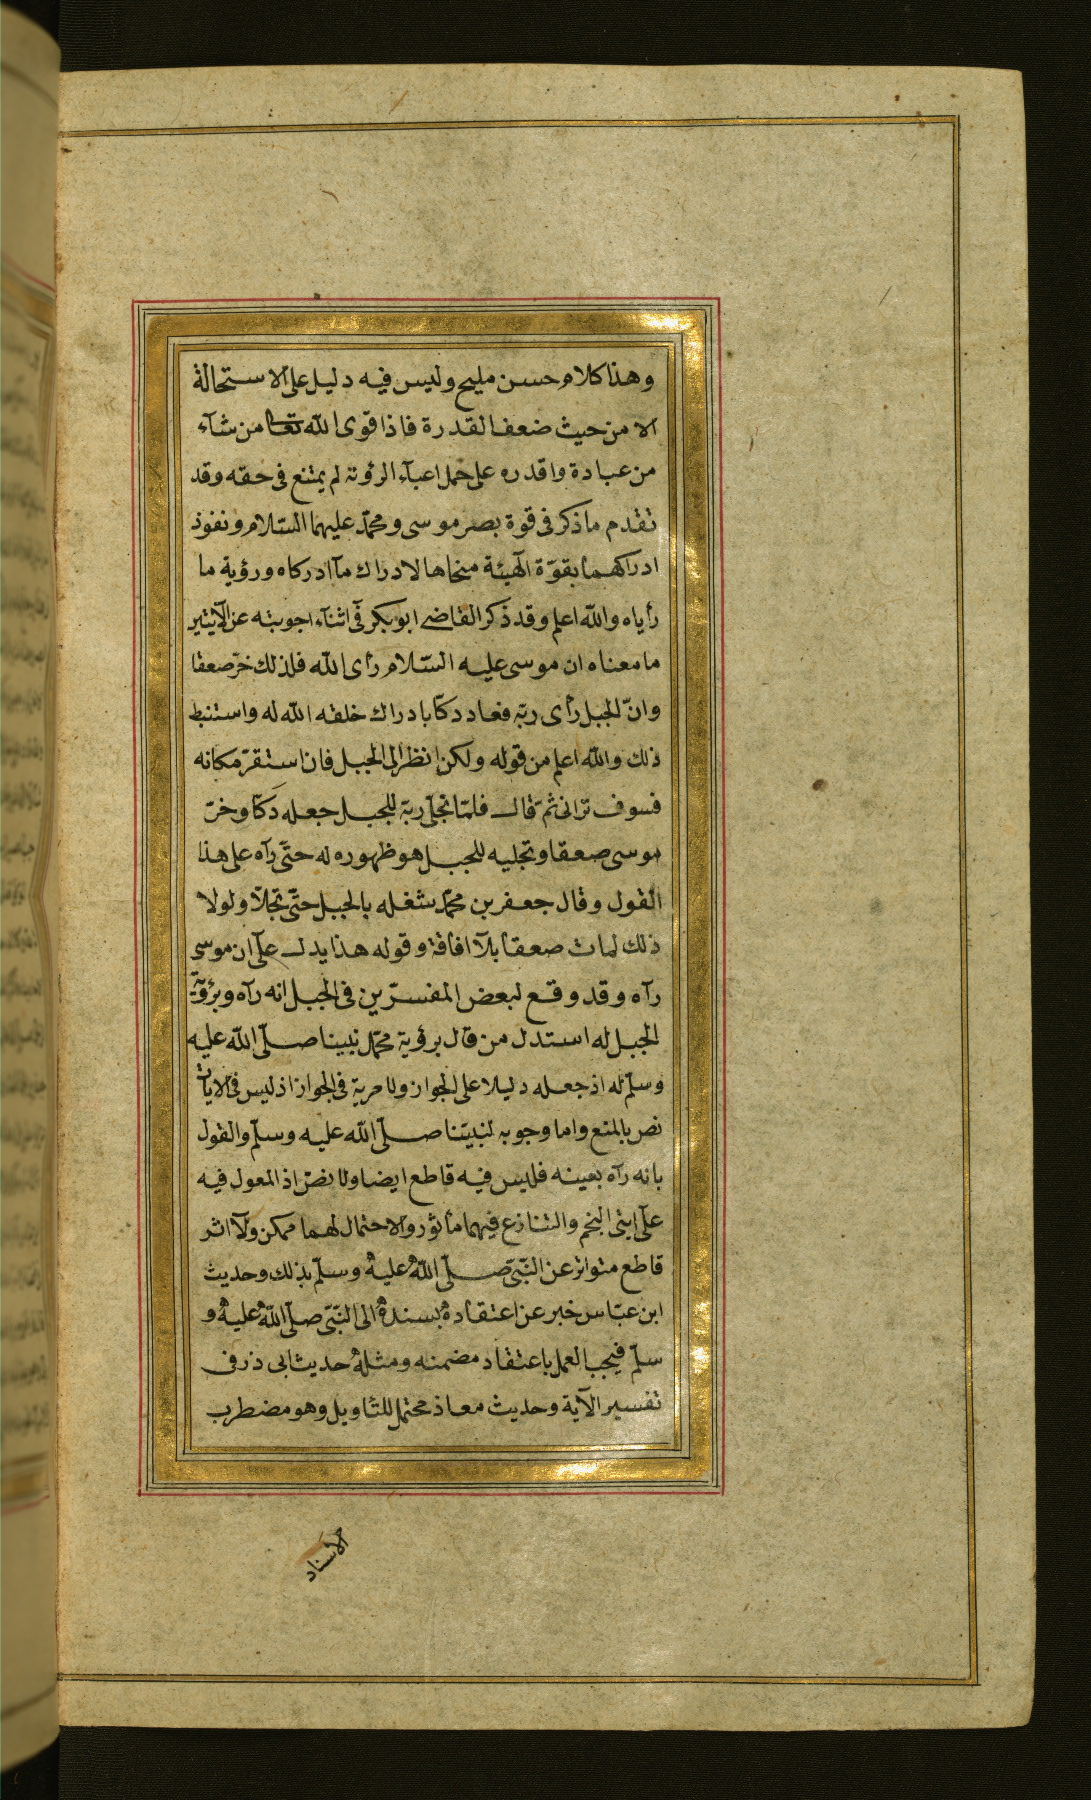 وهذا كلام حسن مليح وليس فيه دليل على الاستحالة
الا من حيث ضعف القدرة فاذا قوى الله تعا من شآء
من عبادة واقدره على حمل اعبآء الرؤية لم يمتنع فى حقه وقد
تقدم ما ذكر فى قوة بصر موسى ومحمّد عليهما السّلام ونفوذ
ادراكهما بقوّة آلهيئة منحاها لادراك مآ ادركاه ورؤية ما
رأياه والله اعلم وقد ذكر القاضى ابو بكر فى اثنآء اجوبته عن الآيتير
ما معناه ان موسى عليه السّلام رأى الله فلذلك خرّ صعقا
وانّ الجبل رأى ربّه فعاد دكّا بادراك خلقه الله له واستنبط
ذلك والله اعلم من قوله ولكن انظر الى الجبل فان استقرّ مكانه
فسوف ترانى ثمّ قال فلمّا تجلّى ربّه للجبل جعله دَكّا وخرّ
موسى صعقا وتجليه للجبل هو ظهوره له حتّى رآه على هذا
القول وقال جعفر بن محمّد شغله بالجبل حتّى تجلّا ولولا
ذلك لمات صعقا بلآ افاقة وقوله هذا يدل علىٓ ان موسى
رآه وقد وقع لبعض المفسرّين فى الجبل انه رآه وبرؤية
الجبل له استدل من قال برؤية محمّد نبينا صلّى الله عليه
وسلّم له اذ جعله دليلا على الجواز ولا مرية فى الجواز اذ ليس فى الايات
نص بالمنع واما وجوبه لنبيّنا صلّى الله عليه وسلّم والقول
بانه رآه بعينه فليس فيه قاطع ايضا ولا نصّ اذ المعول فيه
علىٓ ايتى النجم والتنازع فيهما مأثور والاحتمال لهما ممكن ولآ اثر
قاطع متواتر عن النّبىّ صلّى الله عليه وسلّم بذلك وحديث
ابن عبّاس خبر عن اعتقاده بسنده الى النّبىّ صلّى الله عليه و
سلّم فيجب العمل باعتقاد مضمنه ومثله حديث ابى ذر فى
تفسير الآية وحديث معاذ محتمل للتاويل وهو مضطرب
الاسناد